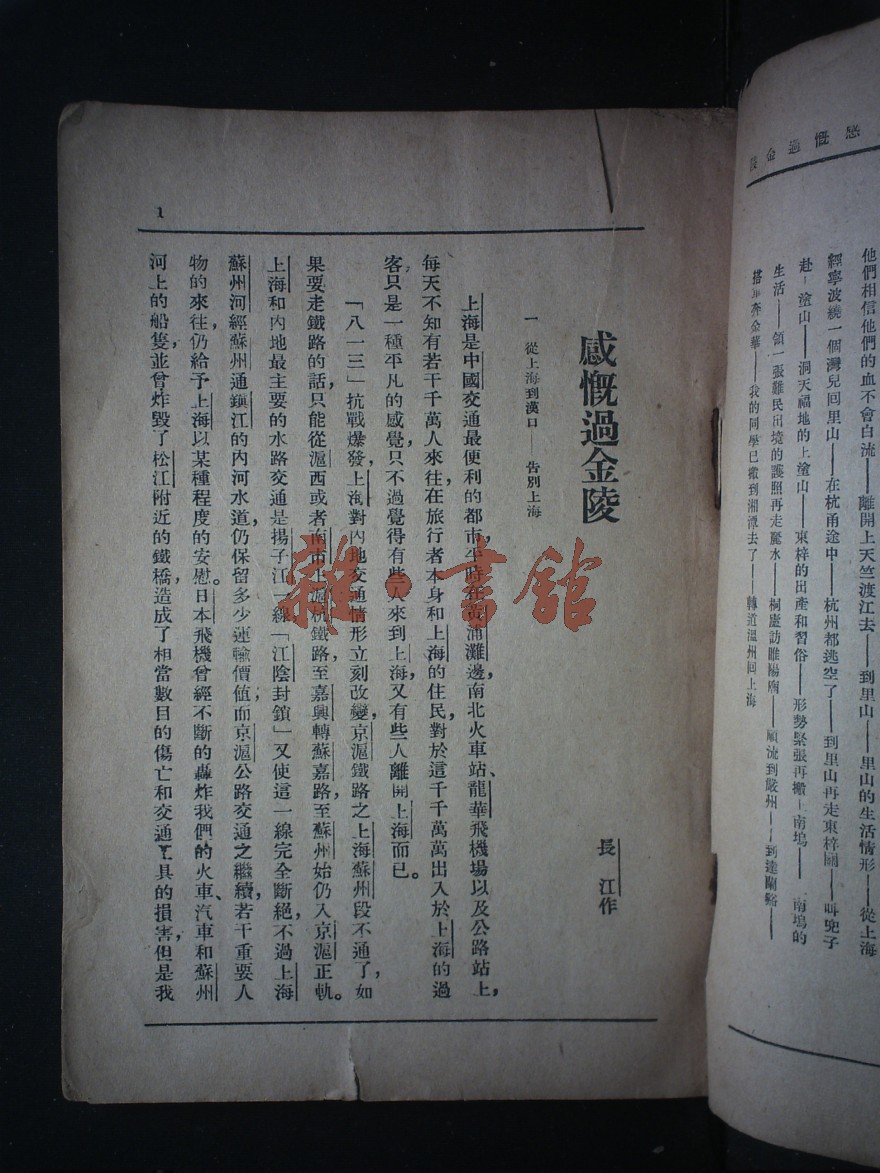 感慨過金陵
他們相信他們的血不會白流——離開上天竺渡江去——到里山——里山的生活情形——從上海
經寧波繞一個灣兒回里山——在杭甬途中——杭州都逃空了——到里山再走東梓關——叫兜子
赴上塗山——洞天福地的上塗山——東梓的出產和習俗——形勢緊張再搬上南塢——南塢的
生活——領一張難民出境的護照再走麗水——桐廬訪睢陽廟——順流到嚴州——到達蘭谿——
搭車奔金華——我的同學已撤到湘潭去了——轉道溫州回上海
感慨過金陵
長江作
一 從上海到漢口——告別上海
上海是中國交通最便利的都市，平時在黃浦灘邊，南北火車站、龍華飛機場以及公路站上，
每天不知有若干千萬人來往，在旅行者本身和上海的住民，對於這千千萬萬出入於上海的過
客只是一種平凡的感覺，只不過覺得有些人來到上海，又有些人離開上海而已。
「八一三」抗戰爆發，上海對內地交通情形立刻改變，京滬鐵路之上海蘇州段不通了，如
果要走鐵路的話，只能從滬西或者南市上滬杭鐵路，至嘉興轉蘇嘉路，至蘇州始仍入京滬正軌。
上海和內地最主要的水路交通是揚子江一線，「江陰封鎖」又使這一線完全斷絕，不過上海
蘇州河經蘇州通鎮江的內河水道，仍保留多少運輸價值，而京滬公路交通之繼續，若干重要人
物的來往，仍給予上海以某種程度的安慰。日本飛機曾經不斷的轟炸我們的火車、汽車和蘇州
河上的船隻，並曾炸毀了松江附近的鐵橋，造成了相當數目的傷亡和交通工具的損害，但是我
1
雜·書館